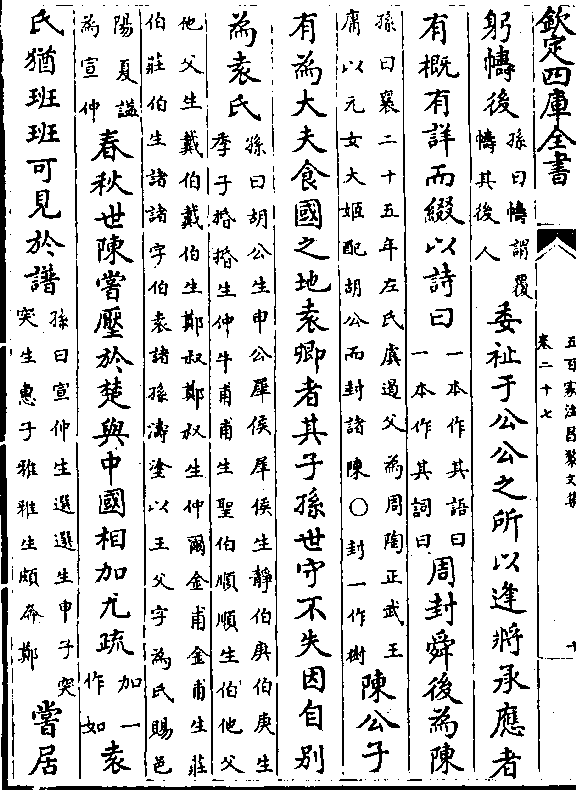 欽定四庫全書
五百家注昌黎文集
卷二十七
十
躬幬後
孫曰幬謂覆
幬其後人
委祉于公公之所以逢將承應者
有概有詳而綴以詩曰
一本作其語曰
一本作其詞曰
周封舜後為陳
孫曰襄二十五年左氏虞遏父為周陶正武王
庸以元女大姬配胡公而封諸陳〇封一作樹
陳公子
有為大夫食國之地袁卿者其子孫世守不失因自別
為袁氏
孫曰胡公生申公犀侯犀侯生靜伯庚伯庚生
季子惽惽生仲牛甫甫生聖伯順順生伯他父
他父生戴伯戴伯生鄭叔鄭叔生仲爾金甫金甫生莊
伯莊伯生諸諸字伯袁諸孫濤塗以王父字為氏賜邑
陽夏諡
為宣仲
春秋世陳嘗壓於楚與中國相加尤疏
加一
作如
袁
氏猶班班可見於譜
孫曰宣仲生選選生申子突
突生惠子雅雅生頗奔鄭
嘗居